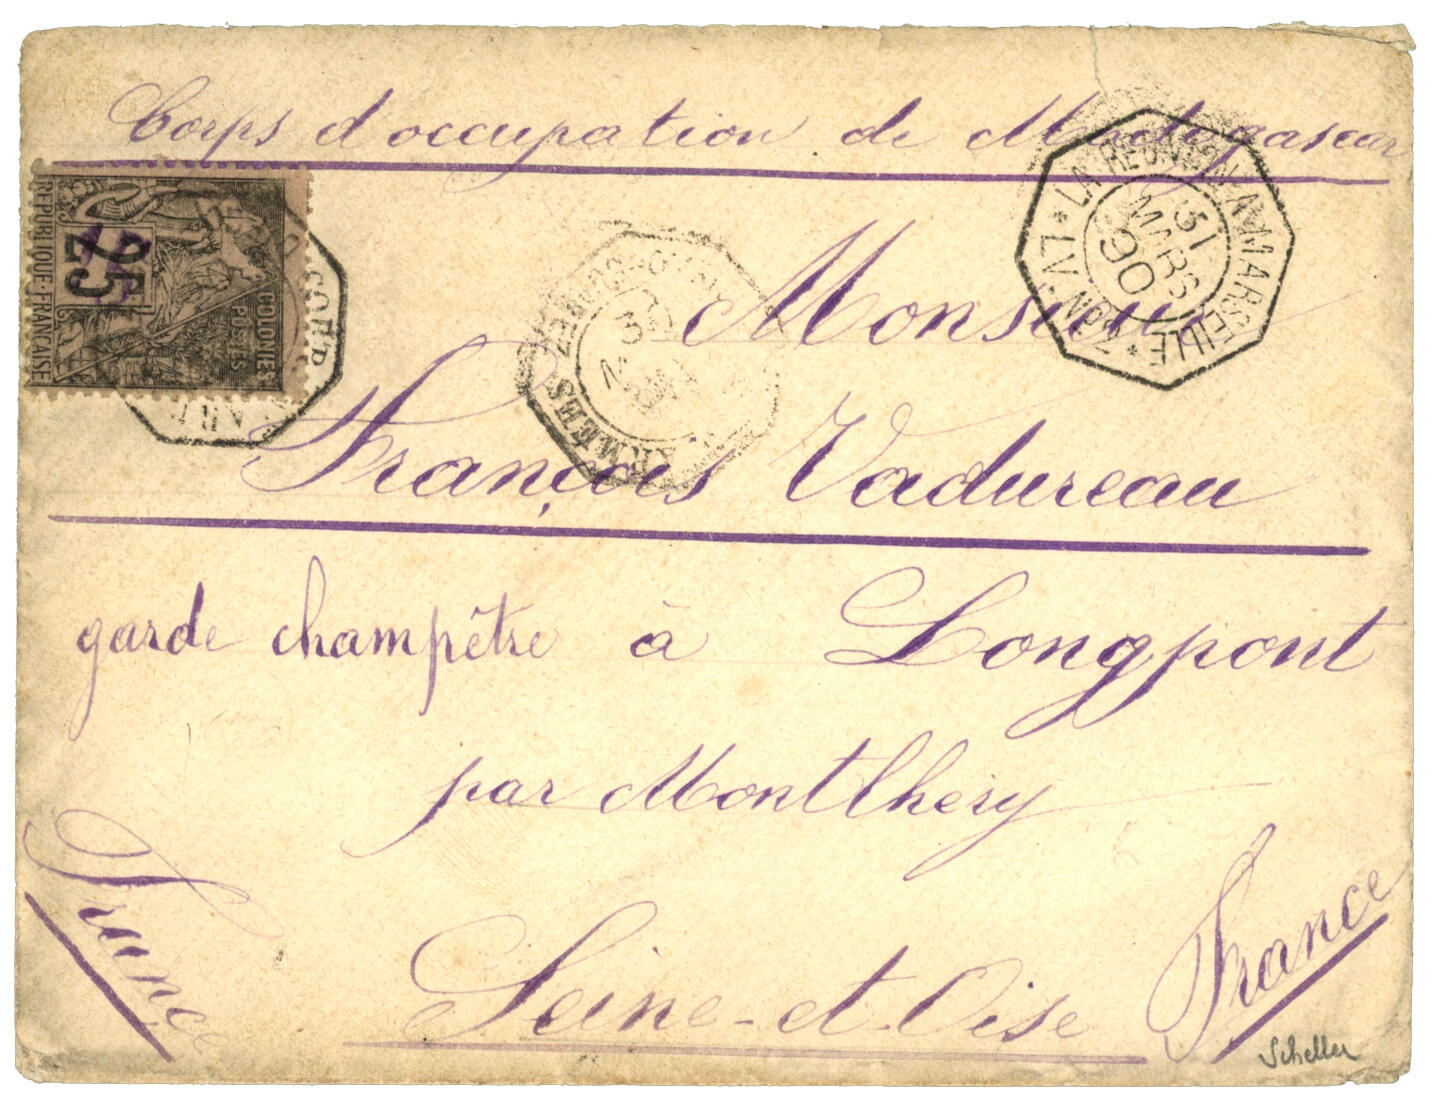 Corps d'occupation de Madagascar
RÉPUBLIQUE FRANÇAISE
25
COLONIES
POSTES
LA REUNION A MARSEILLE
LV. N°
31
MARS
90
ARMÉES
30
Monsieur
François Vadureau
garde champêtre à Longpont
par Montlhéry
Seine-et-Oise
France
France
Scheller